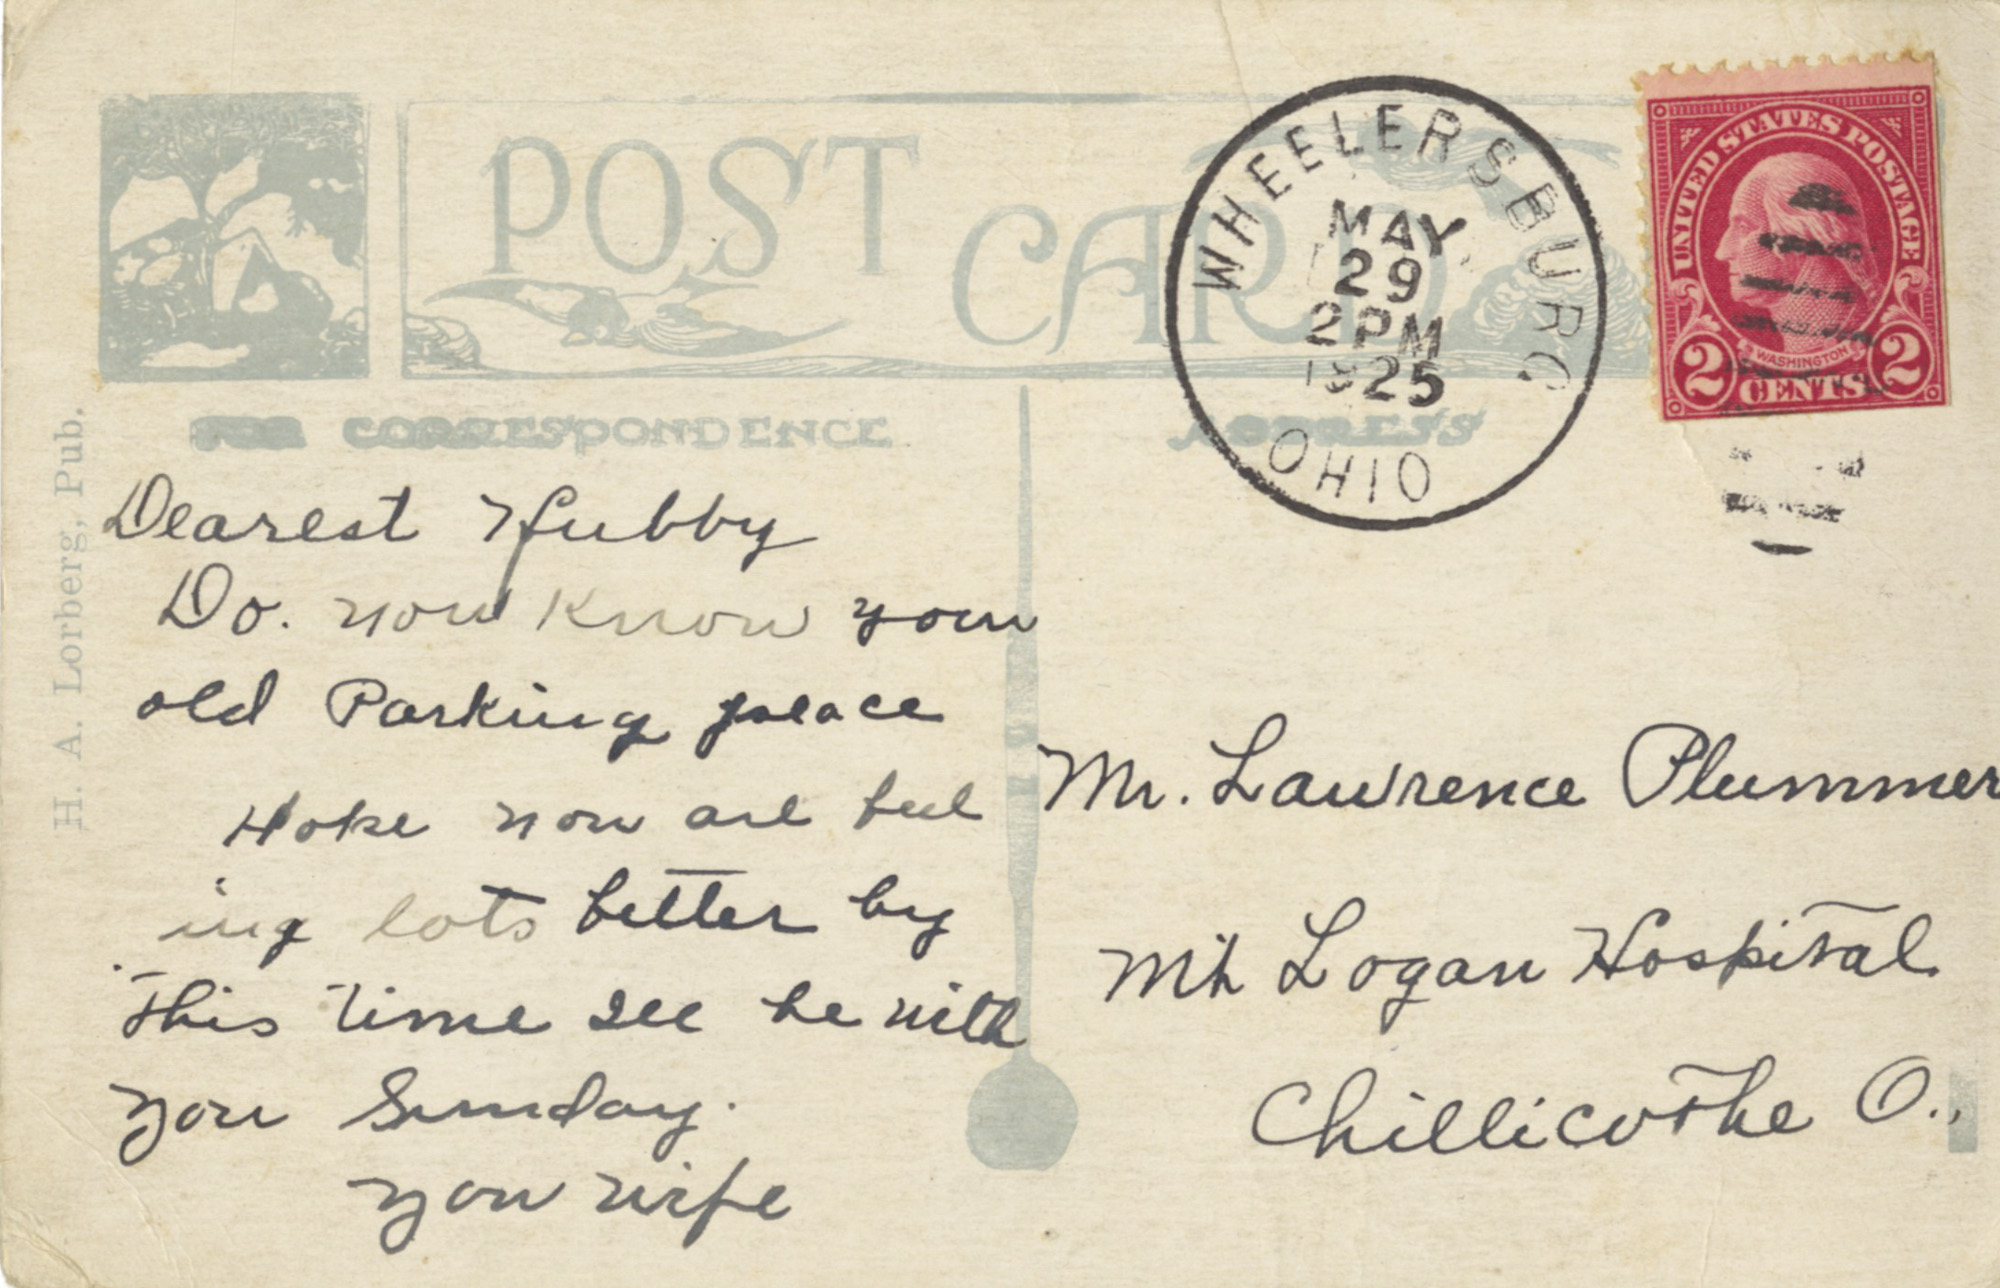 POST CARD
WHEELERSBURG
MAY
29
2PM
1925
OHIO
UNITED STATES POSTAGE
WASHINGTON
2 CENTS 2
FOR CORRESPONDENCE
ADDRESS
H. A. Lorberg, Pub.
Dearest Hubby
Do. you know your
old Parking place
Hope you are feel
ing lots better by
this time see be with
you Sunday.
your wife
Mr. Lawrence Plummer
Mt Logan Hospital
Chillicothe O.